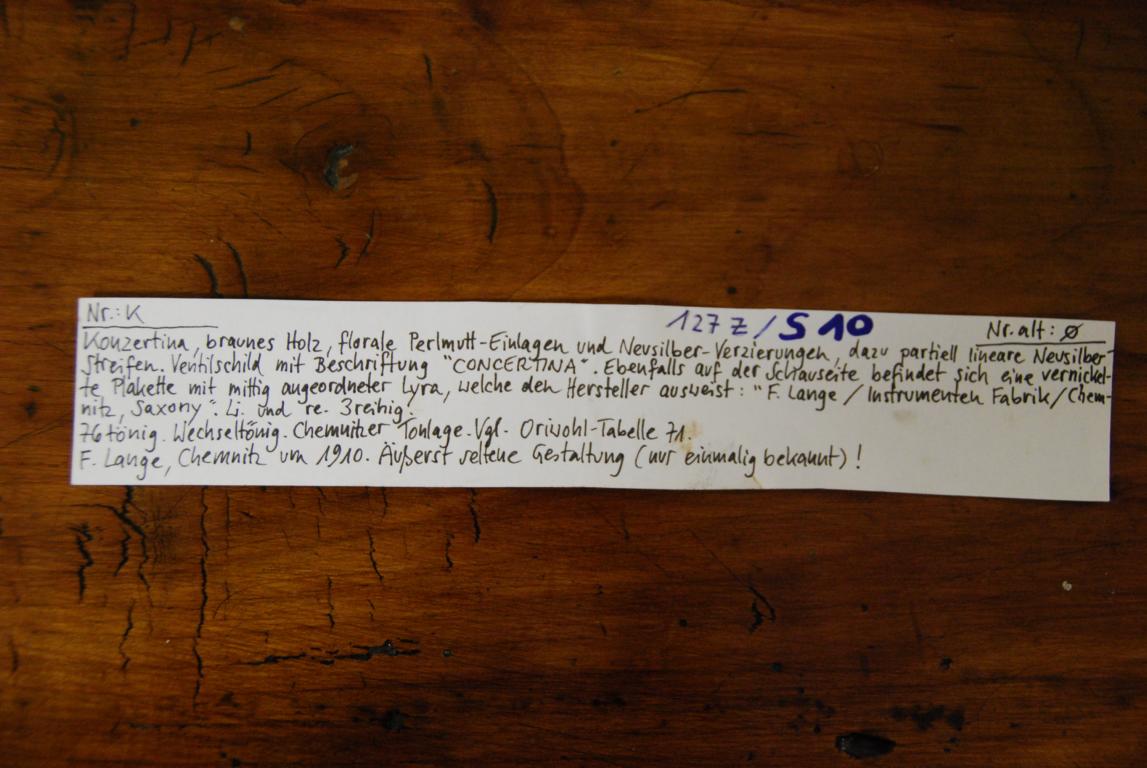 Nr.: K
127 Z / S 10
Nr. alt: ø
Konzertina, braunes Holz, florale Perlmutt-Einlagen und Neusilber-Verzierungen, dazu partiell lineare Neusilber-
Streifen. Ventilschild mit Beschriftung "CONCERTINA". Ebenfalls auf der Schauseite befindet sich eine vernickel-
te Plakette mit mittig angeordneter Lyra, welche den Hersteller ausweist: "F. Lange / Instrumenten Fabrik / Chem-
nitz, Saxony". Li. und re. 3reihig.
76tönig. Wechseltönig. Chemnitzer Tonlage. Vgl. Oriwohl-Tabelle 71.
F. Lange, Chemnitz um 1910. Äußerst seltene Gestaltung (nur einmalig bekannt)!